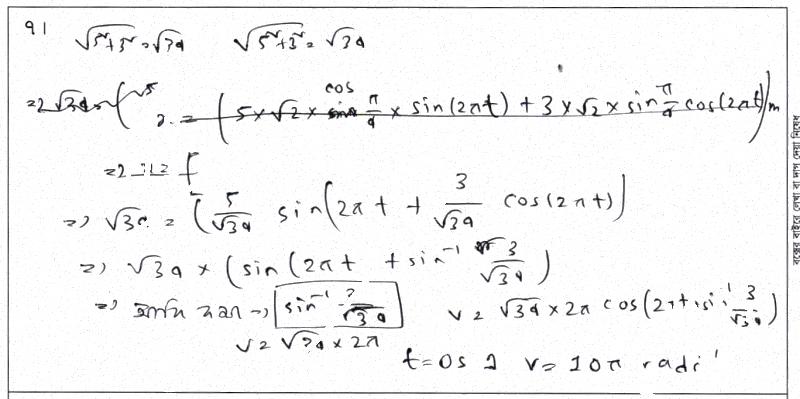 91 √5²+3² = √34 √5²+3² = √34
(5×√2× cos π/4 × sin(2πt) + 3×√2× sin π/4 cos(2πt))m
=) √34 = (5/√34 sin(2πt + 3/√34 cos(2πt))
=) √34 × (sin(2πt + sin⁻¹ 3/√34)
=) আদি দশা → sin⁻¹ 3/√34 v = √34 × 2π cos(2πt + sin⁻¹ 3/√34)
v = √34 × 2π
t=0s এ v = 10π rads⁻¹
বক্সের বাইরে লেখা বা দাগ দেয়া নিষেধ